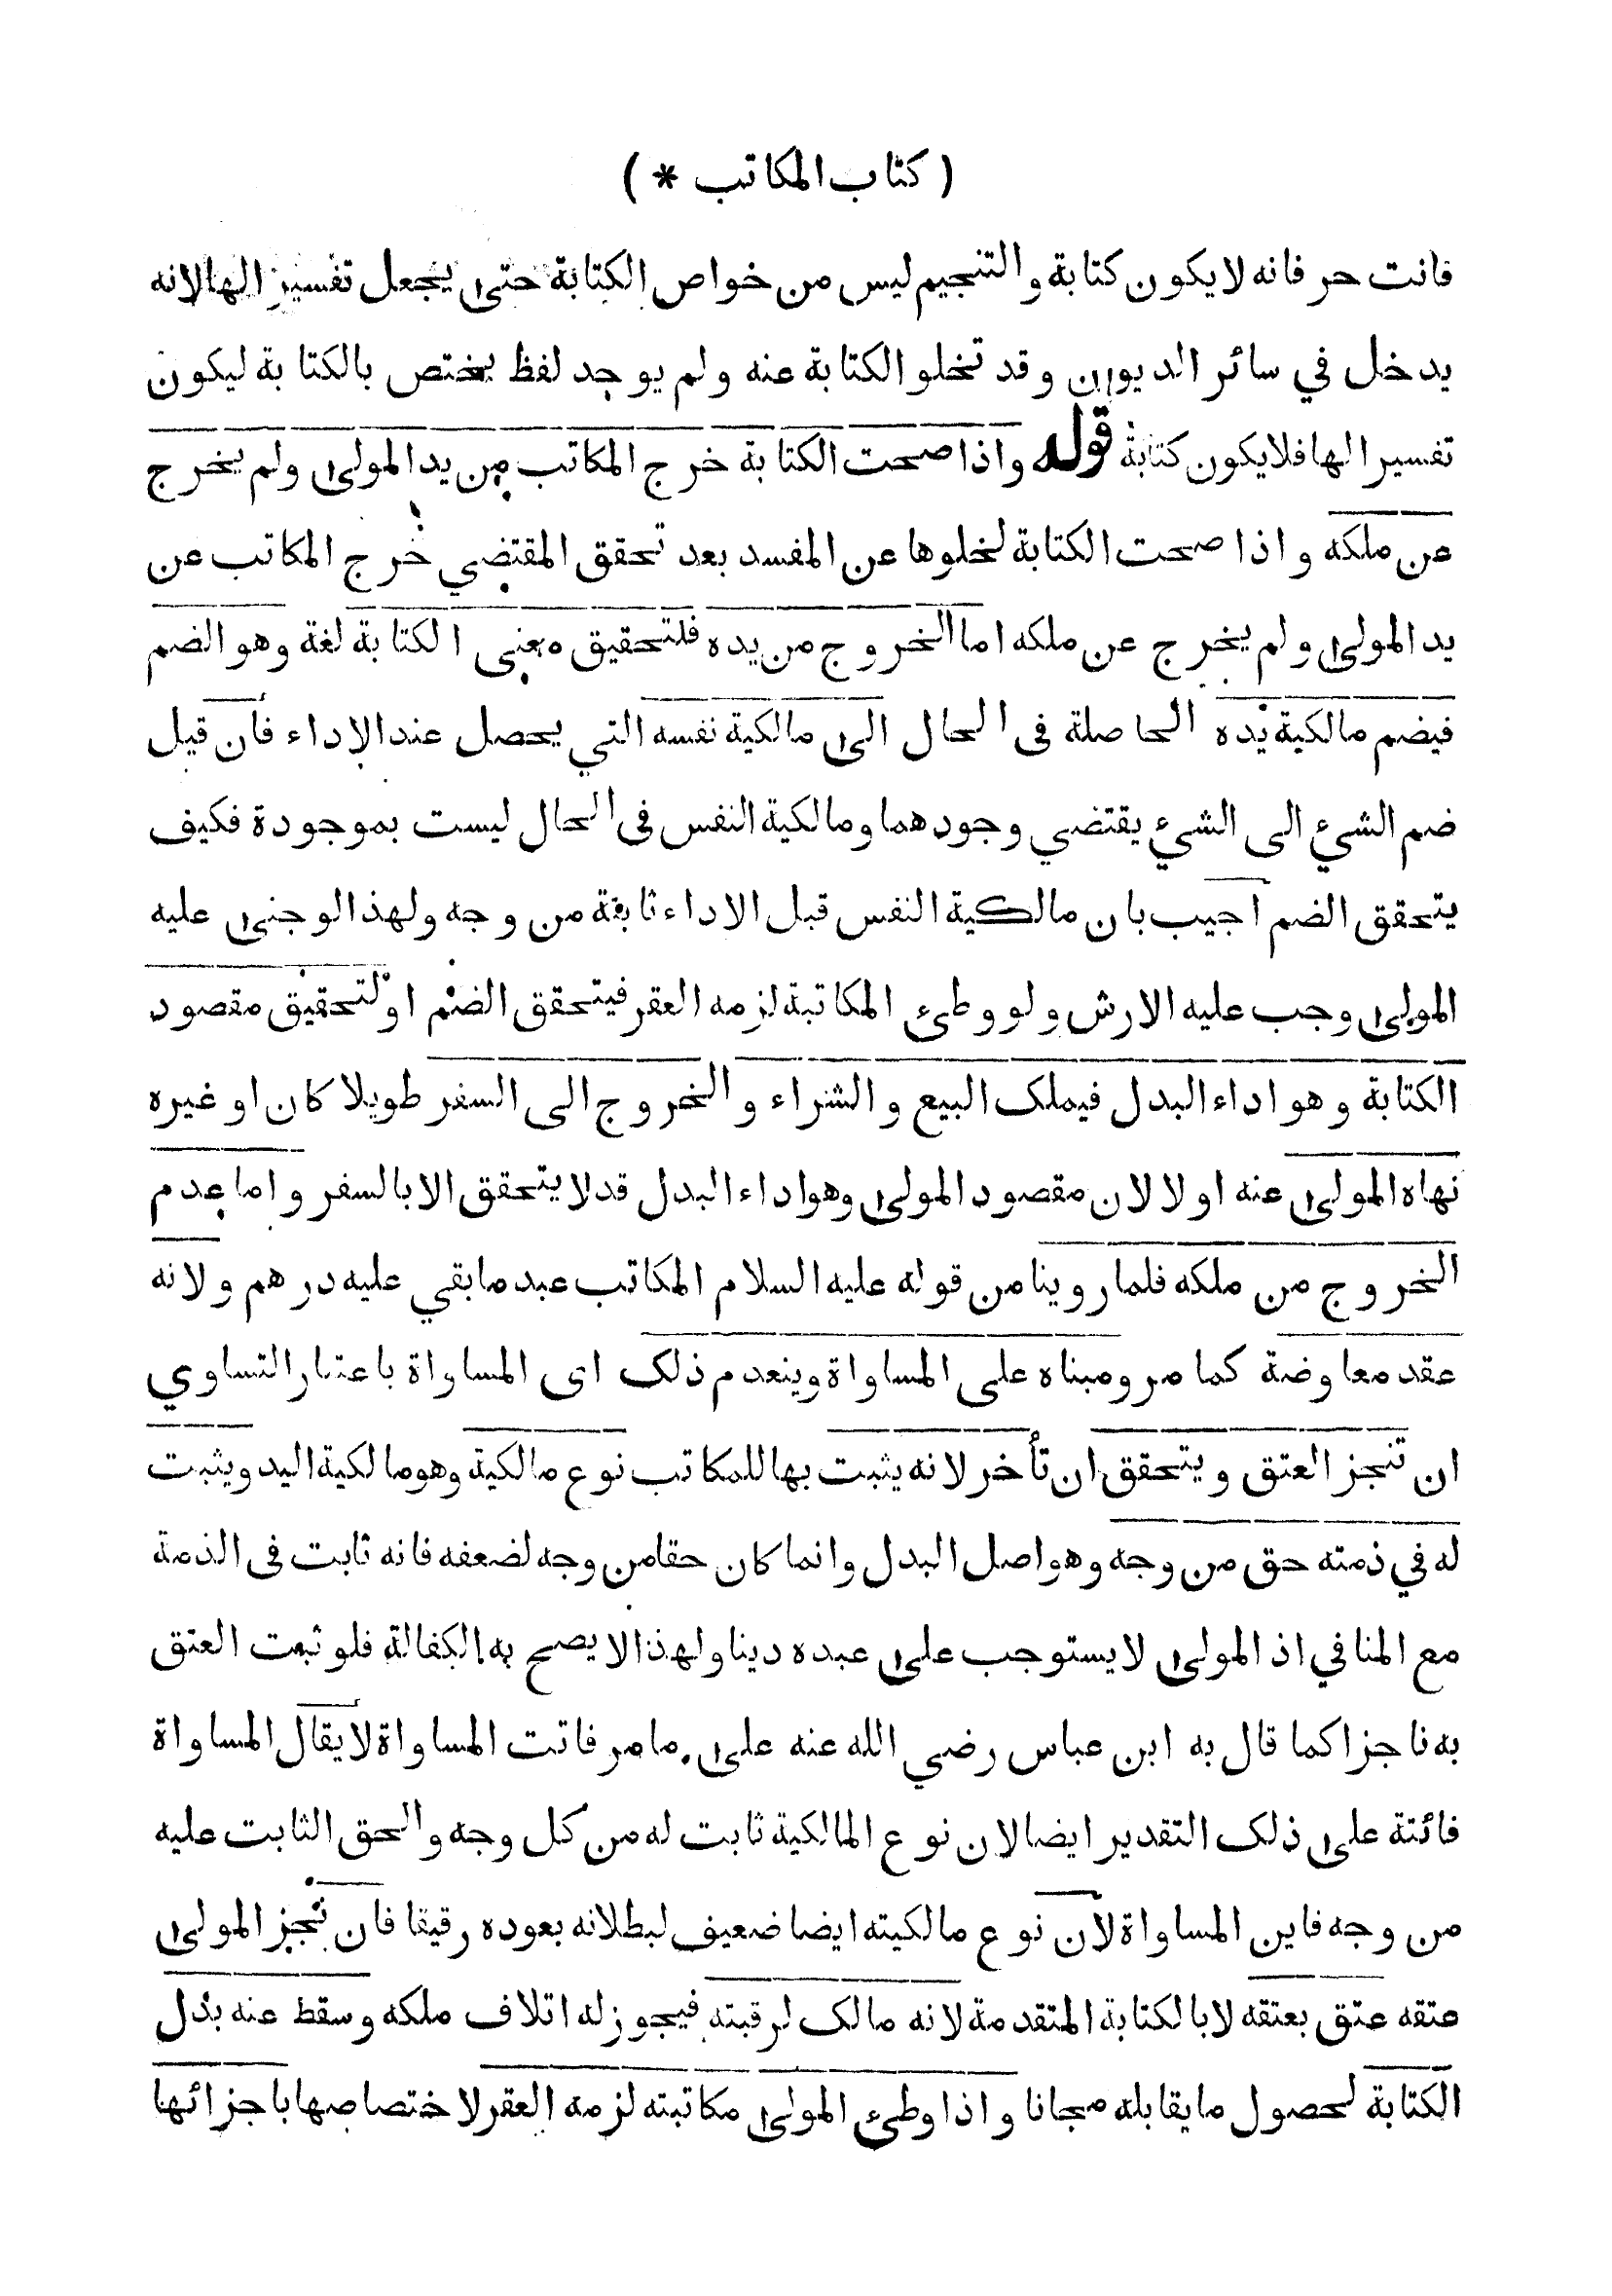 ( كتاب المكاتب * )
فانت حر فانه لا يكون كتابة والتنجيم ليس من خواص الكتابة حتى يجعل تفسيرا لها لانه
يدخل في سائر الديون وقد تخلو الكتابة عنه ولم يوجد لفظ يختص بالكتابة ليكون
تفسيرا لها فلا يكون كتابة قوله واذا صحت الكتابة خرج المكاتب من يد المولى ولم يخرج
عن ملكه واذا صحت الكتابة لخلوها عن المفسد بعد تحقق المقتضي خرج المكاتب عن
يد المولى ولم يخرج عن ملكه اما الخروج من يده فلتحقيق معنى الكتابة لغة وهو الضم
فيضم مالكية يده الحاصلة في الحال الى مالكية نفسه التي يحصل عند الاداء فان قيل
ضم الشيء الى الشيء يقتضي وجودهما ومالكية النفس في الحال ليست بموجودة فكيف
يتحقق الضم اجيب بان مالكية النفس قبل الاداء ثابتة من وجه ولهذا لو جنى عليه
المولى وجب عليه الارش ولو وطئ المكاتبة لزمه العقر فيتحقق الضم او لتحقيق مقصود
الكتابة وهو اداء البدل فيملك البيع والشراء والخروج الى السفر طويلا كان او غيره
نهاه المولى عنه او لا لان مقصود المولى وهو اداء البدل قد لا يتحقق الا بالسفر واما عدم
الخروج من ملكه فلما روينا من قوله عليه السلام المكاتب عبد ما بقي عليه درهم ولانه
عقد معاوضة كما مر ومبناه على المساواة وينعدم ذلك اى المساواة باعتبار التساوي
ان تنجز العتق ويتحقق ان تأخر لانه يثبت بها للمكاتب نوع مالكية وهو مالكية اليد ويثبت
له في ذمته حق من وجه وهو اصل البدل وانما كان حقا من وجه لضعفه فانه ثابت في الذمة
مع المنافي اذ المولى لا يستوجب على عبده دينا ولهذا لا يصح به الكفالة فلو ثبت العتق
به ناجزا كما قال به ابن عباس رضي الله عنه على ما مر فاتت المساواة لا يقال المساواة
فائتة على ذلك التقدير ايضا لان نوع المالكية ثابت له من كل وجه والحق الثابت عليه
من وجه فاين المساواة لان نوع مالكيته ايضا ضعيف لبطلانه بعوده رقيقا فان نجز المولى
عتقه عتق بعتقه لا بالكتابة المتقدمة لانه مالك لرقبته فيجوز له اتلاف ملكه وسقط عنه بدل
الكتابة لحصول ما يقابله مجانا واذا وطئ المولى مكاتبته لزمه العقر لاختصاصها باجزائها